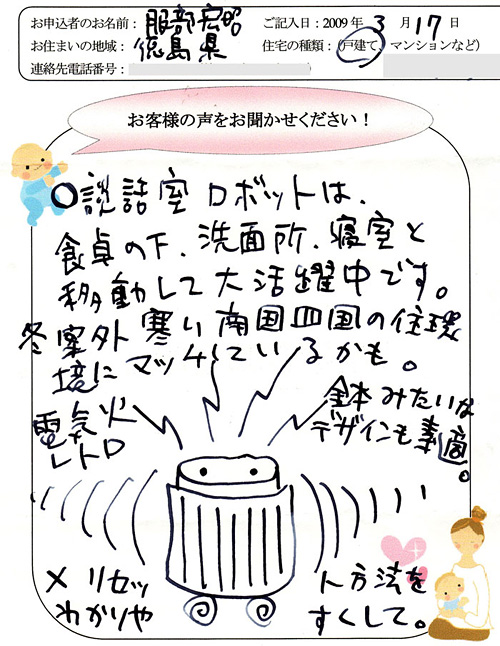 お申込者のお名前：服部宏昭 ご記入日：2009年3月17日
お住まいの地域：徳島県 住宅の種類：(戸建て、マンションなど)
連絡先電話番号：
お客様の声をお聞かせください！
○談話室ロボットは、
食卓の下、洗面所、寝室と
移動して大活躍中です。
冬案外寒い南国四国の住環
境にマッチしているかも。
電気火
レトロ
みたいな
デザインも素適。
× リセット方法を
わかりやすくして。